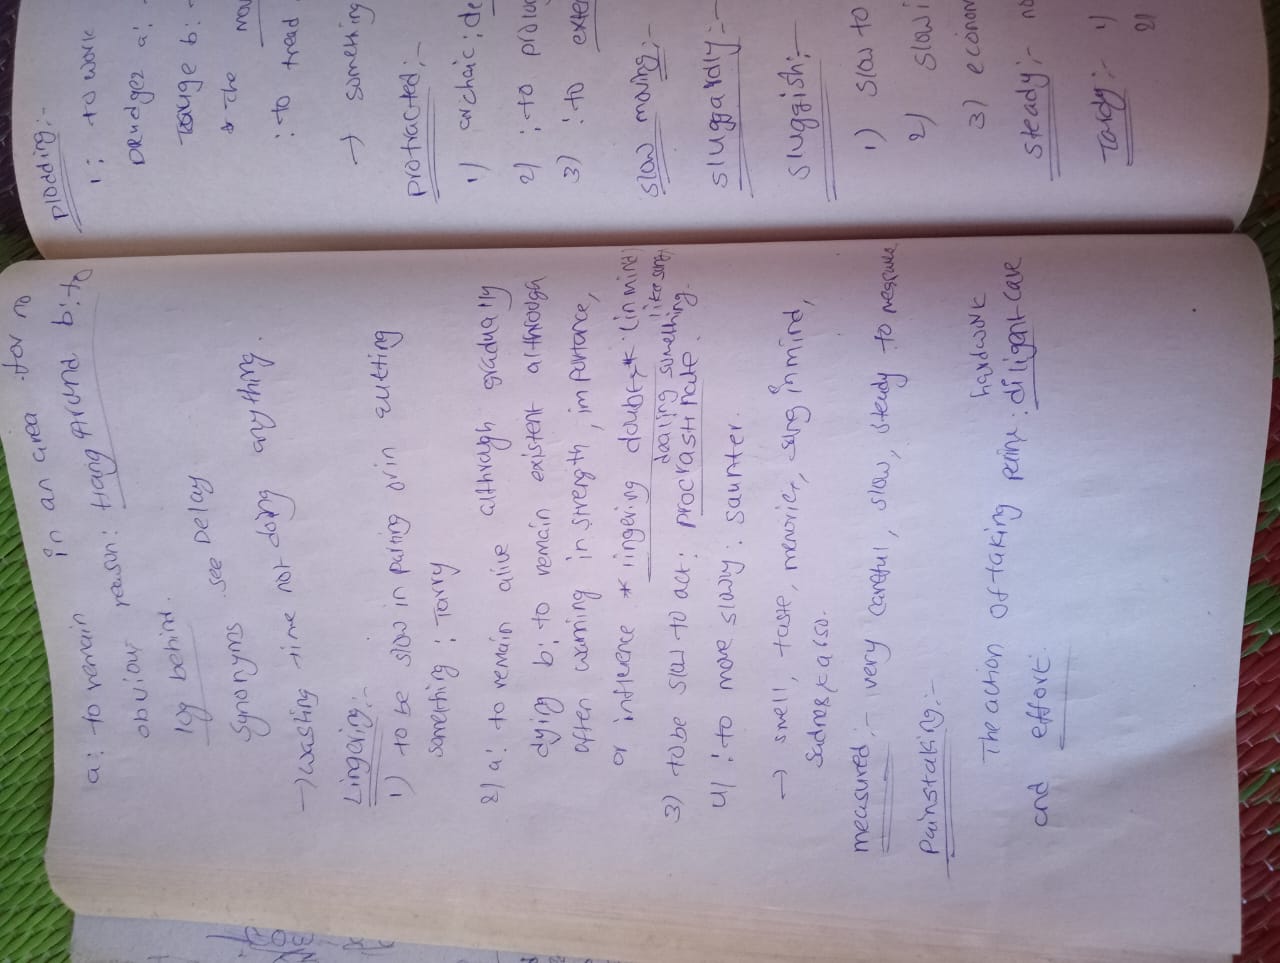 a: to remain in an area for no
obviour reason: Hang around b: to
lag behind.
Synonyms see Delay
→ wasting time not doing anything.
Lingering:-
1) to be slow in parting or in quitting
something : Tarry
2) a: to remain alive although gradually
dying b: to remain existent although
often waning in strength, importance,
or influence * lingering doubts* (in mind
like song)
dealing something.
3) to be slow to act: procrastinate.
4) : to move slowly: saunter.
→ smell, taste, memories, song in mind,
Sadness also.
measured:- very careful, slow, steady to
Painstaking:-
hardwork
The action of taking pains: diligent care
and effort.
Plodding:-
1: to work
Drudge2 a:
b:
the
: to tread
→ something
protracted:-
1) archaic:
2) : to
3) : to
slow moving:-
sluggardly:-
sluggish:-
1) slow to
2)
3)
steady:-
Tardy:- 1)
2)